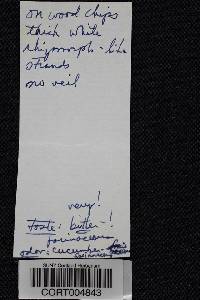 on wood chips
thick white
rhizomorph-like
strands
no veil
very!
taste: bitter-!
farinaceous
odor: cucumber-
SUNY Cortland Herbarium
CORT004843